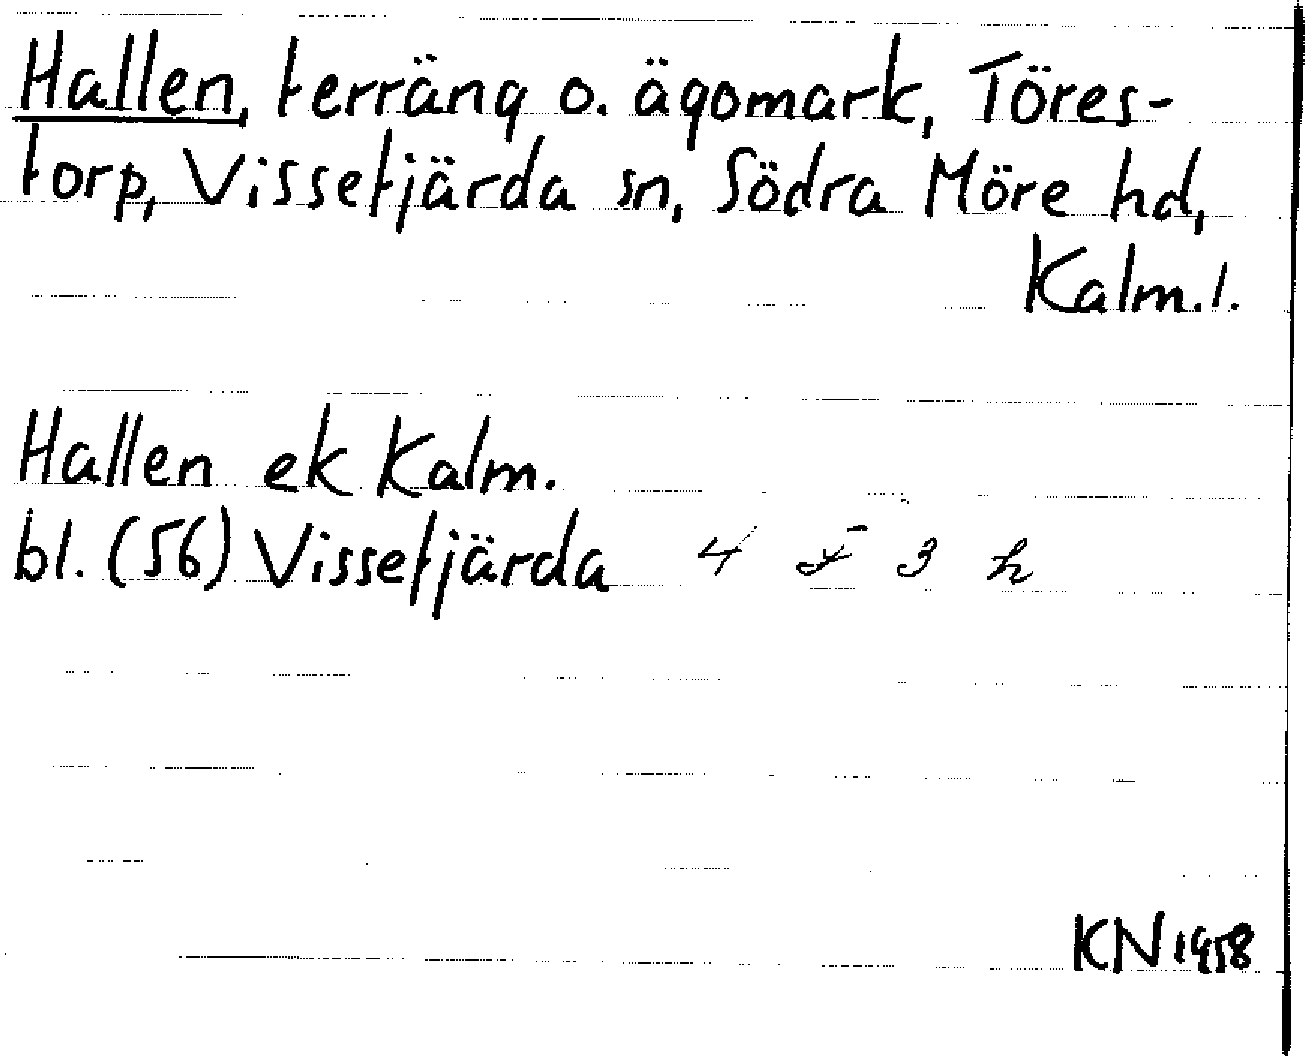 Hallen, terräng o. ägomark, Töres-
torp, Vissefjärda sn, Södra Möre hd,
Kalm. l.
Hallen ek Kalm.
bl. (56) Vissefjärda 4 F 3 h
KN 1958